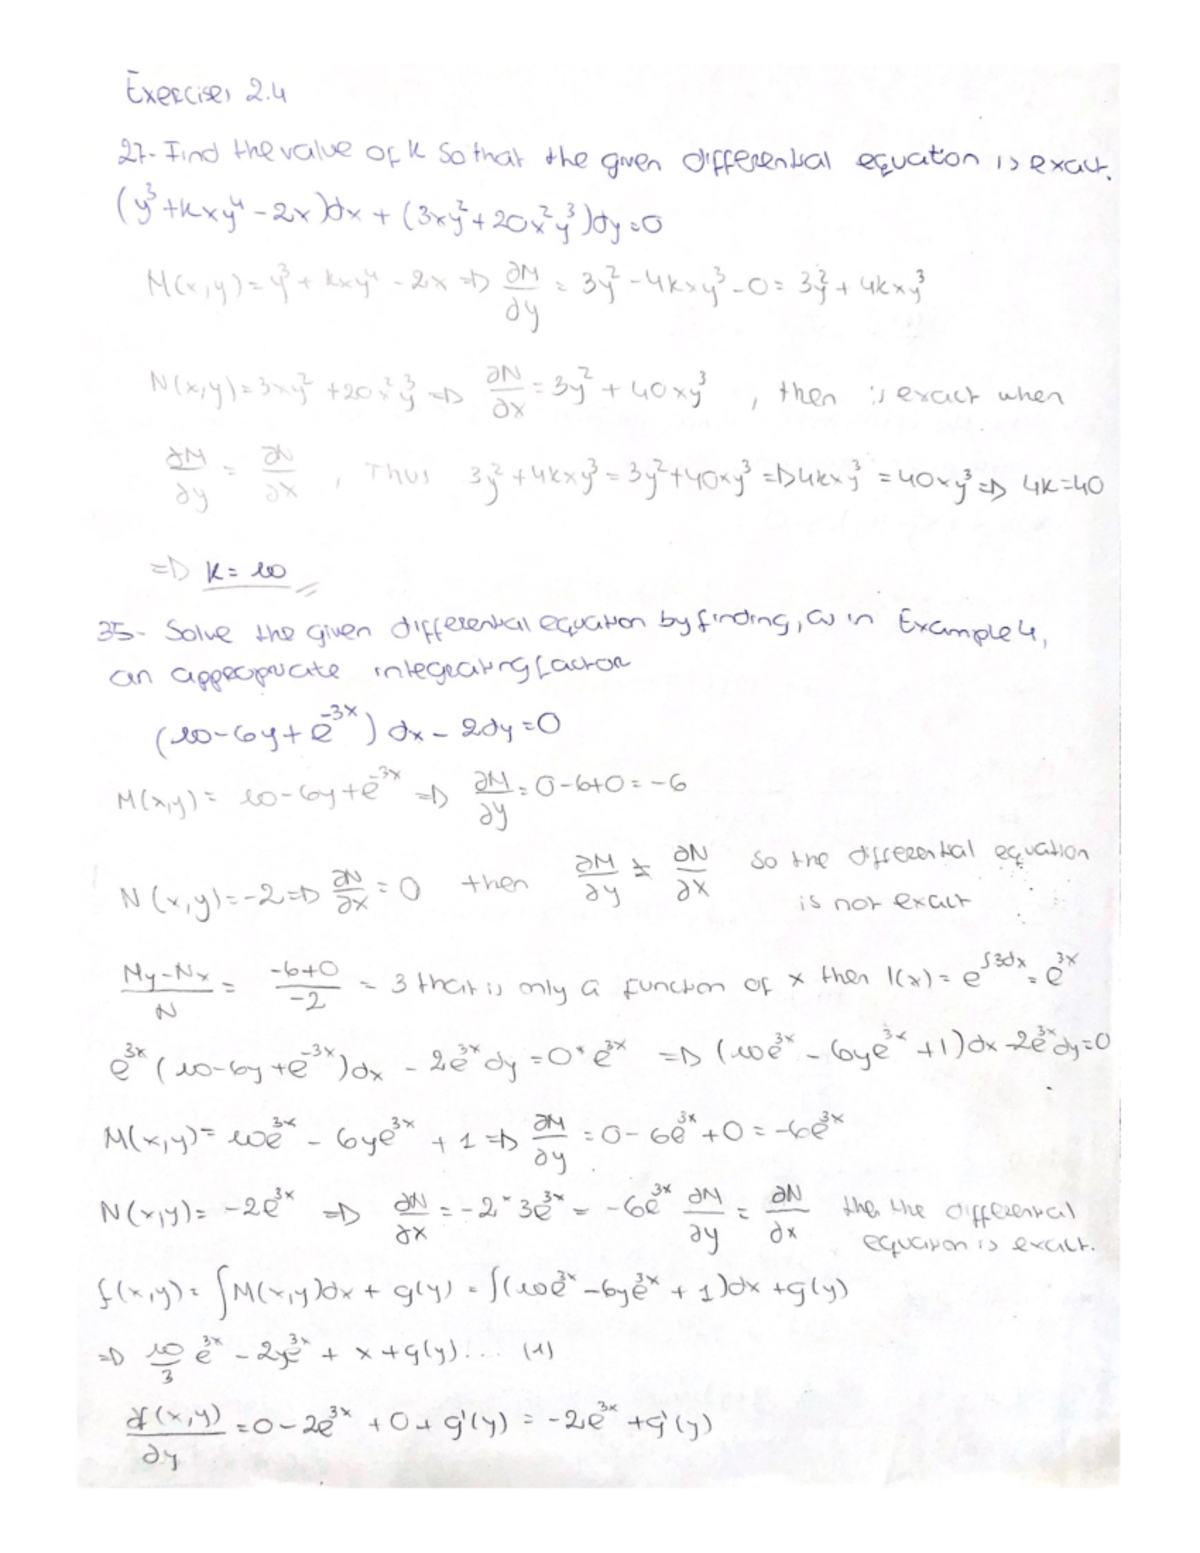 Exercises 2.4
27- Find the value of k so that the given differential equation is exact.
(y³+kxy⁴-2x)dx + (3xy²+20x²y³)dy=0
M(x,y)=y³+kxy⁴-2x => ∂M/∂y = 3y²-4kxy³-0= 3y²+4kxy³
N(x,y)=3xy²+20x²y³ => ∂N/∂x = 3y²+40xy³, then is exact when
∂M/∂y = ∂N/∂x, Thus 3y²+4kxy³=3y²+40xy³ => 4kxy³=40xy³ => 4k=40
=> k=10
35- Solve the given differential equation by finding, as in Example 4,
an appropriate integrating factor
(10-6y+e^{-3x})dx - 2dy=0
M(x,y)= 10-6y+e^{-3x} => ∂M/∂y = 0-6+0=-6
N(x,y)=-2 => ∂N/∂x = 0 then ∂M/∂y ≠ ∂N/∂x so the differential equation
is not exact
My-Nx/N = -6+0/-2 = 3 that is only a function of x then I(x)= e^{∫3dx} = e^{3x}
e^{3x}(10-6y+e^{-3x})dx - 2e^{3x}dy=0*e^{3x} => (10e^{3x}-6ye^{3x}+1)dx-2e^{3x}dy=0
M(x,y)=10e^{3x}-6ye^{3x}+1 => ∂M/∂y = 0-6e^{3x}+0=-6e^{3x}
N(x,y)=-2e^{3x} => ∂N/∂x = -2*3e^{3x} = -6e^{3x} ∂M/∂y = ∂N/∂x the, the differential
equation is exact.
f(x,y)= ∫M(x,y)dx + g(y) = ∫(10e^{3x}-6ye^{3x}+1)dx+g(y)
=> 10/3 e^{3x} - 2ye^{3x} + x+g(y)... (1)
∂f(x,y)/∂y = 0-2e^{3x}+0+g'(y) = -2e^{3x}+g'(y)